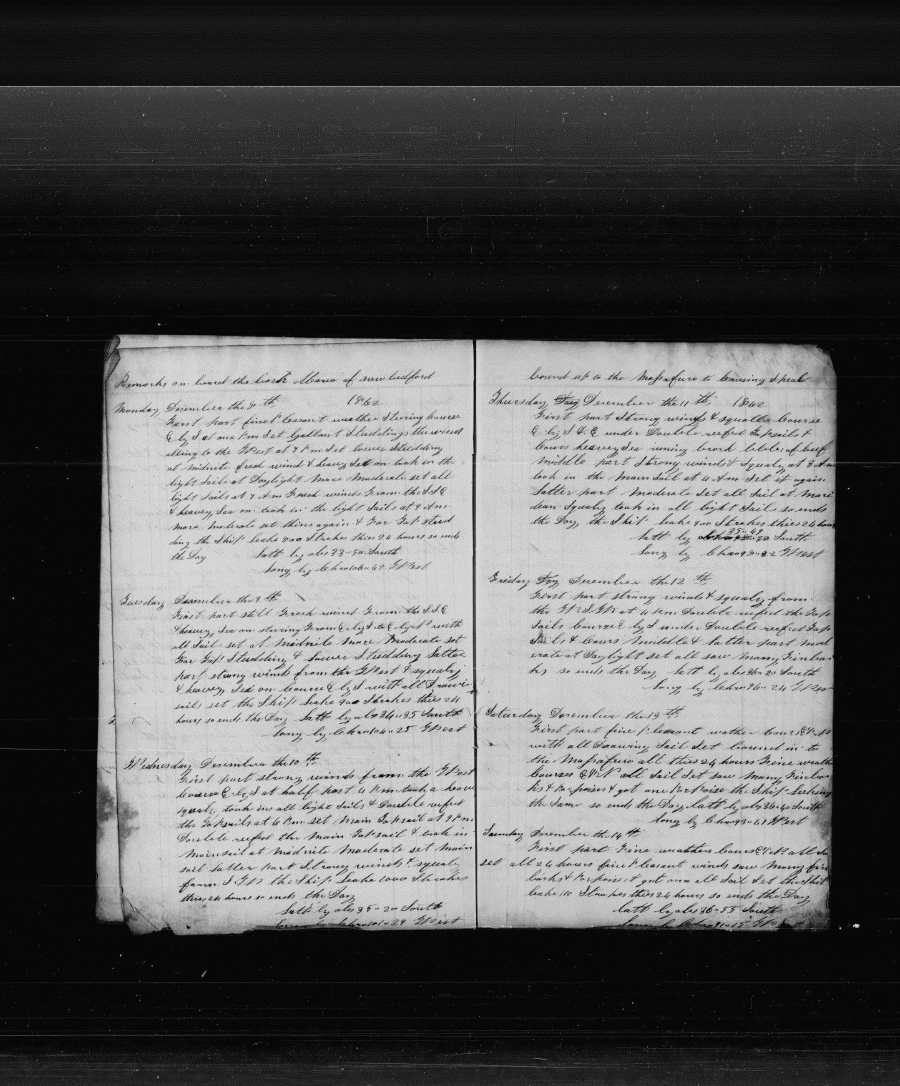 Remarks on board the bark Maria of new bedford
Monday December the 8th 1862
First part fine pleasant weather Stering Course
E by S at one Pm Set Gallant Studdings the wind
alling to the West at 7 Pm Set lower Studding
at midnite fresh wind & heavey Sea on took in the
light Sails at Daylight More Moderate set all
light Sails at 7 Am Fresh winds From the S.S.E
& heavey Sea on took in the light Sails at 9 Am
more moderate set thies again & Far Top stud
ding the Ship Leake 800 Strokes thies 24 hours so ends
the Day Latt by obs 33-50 South
Long by Chro 106-42 West
Tuesday December the 9th
First part still Fresh wind From the S.S.E
& heavey Sea on stering From E by S to E by N with
all Sail set at Madnite More Moderate set
Far Top Studding & Lower Studding Latter
part strong wind from the West & squaly
& heavey Sea on Course E by S with all Drawin
sail set the Ship Leake 900 Strokes thies 24
hours so ends the Day Latt by obs 34-35 South
Long by Chro 104-25 West
Wednesday December the 10th
First part strong winds from the West
Course E by S at half past 4 Pm took a heave
squaly took in all light Sails & Double reefed
the Topsails at 6 Pm set Main Topsail at 9 Pm
Double reefed the Main Topsail & took in
Mainsail at Madnite Moderate set Main
sail Latter part Strong winds & squaly
From S.W the Ship Leake 1000 Strokes
thies 24 hours so ends the Day
Latt by obs 35-20 South
Long by Chro 101-29 West
bound up to the Massafuro to Crusing & peal
Thursday December the 11th 1862
First part Strong winds & squalls Course
E by S & E under Double reefed Topsails &
Cours heavey Sea runing
Middle part Strong winds & Squaly at 3 Am
took in the Main Sail at 4 Am Set it again
Latter part Moderate Set all Sail at Meri
dean Squaly took in all light Sails so ends
the Day the Ship Leake 900 Strokes thies 24 hours
35-49
Latt by South
Long by Chro 98-22 West
Friday December the 12th
First part strong winds & squaly from
the W.S.W at 4 Pm Double reefed the Top
Sails Course E by S under Double reefed Top
Sails & Cours Middle & Latter part Mod
erate at Daylight set all saw Many Finbac
ks so ends the Day Latt by obs 36-20 South
Long by Chro 96-24 West
Saturday December the 13th
First part fine pleasant wather Cours
with all Drawing Sail Set bound in to
the Massafuro all thies 24 hours Fine weath
Courses all Sail Set saw Many Finbac
ks & Porposes & got one Porpoise the Ship Leking
the Same so ends the Day Latt by obs 36-40 South
Long by Chro 93-47 West
Sunday December the 14th
First part Fine weather Cours all Sa
set all 24 hours fine pleasant winds saw Many fin
backs & Porpoises & got all Sail Set the Ship
Leake Strokes thies 24 hours so ends the Day
Latt by obs 36-55 South
Long by Chro 91-15 West